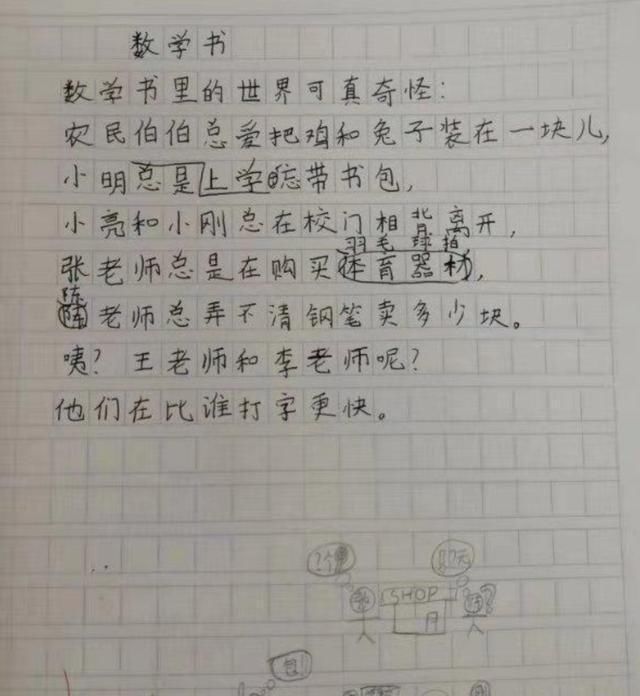 数学书
数学书里的世界可真奇怪：
农民伯伯总爱把鸡和兔子装在一块儿，
小明总是上学忘带书包，
小亮和小刚总在校门相背离开，
羽毛球拍
张老师总是在购买体育器材，
陈
老师总弄不清钢笔卖多少块。
咦？王老师和李老师呢？
他们在比谁打字更快。
SHOP
包!!